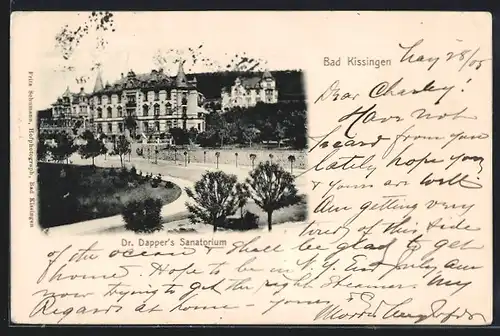 Bad Kissingen
Fritz Schumann, Hofphotograph, Bad Kissingen
Dr. Dapper's Sanatorium
May 28/05
Dear Charley.
Have not
heard from you
lately hope you
& yours are well
Am getting very
tired of this side
of the ocean & shall be glad to get
home. Hope to be in N.Y. End July am
now trying to get the right steamer. My
Regards at home yours